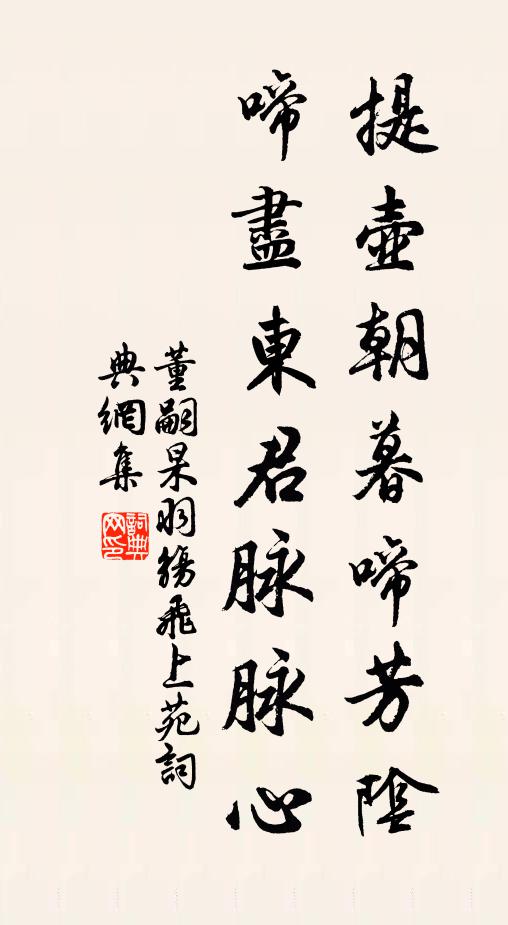 提壺朝暮啼芳陰
啼盡東君脉脉心
董嗣杲羽觴飛上苑詞
典網集
詞典
網印